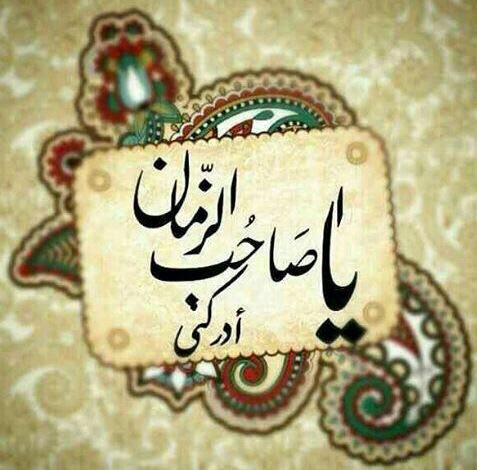 يا صَاحُب الزّمان
أدركنى